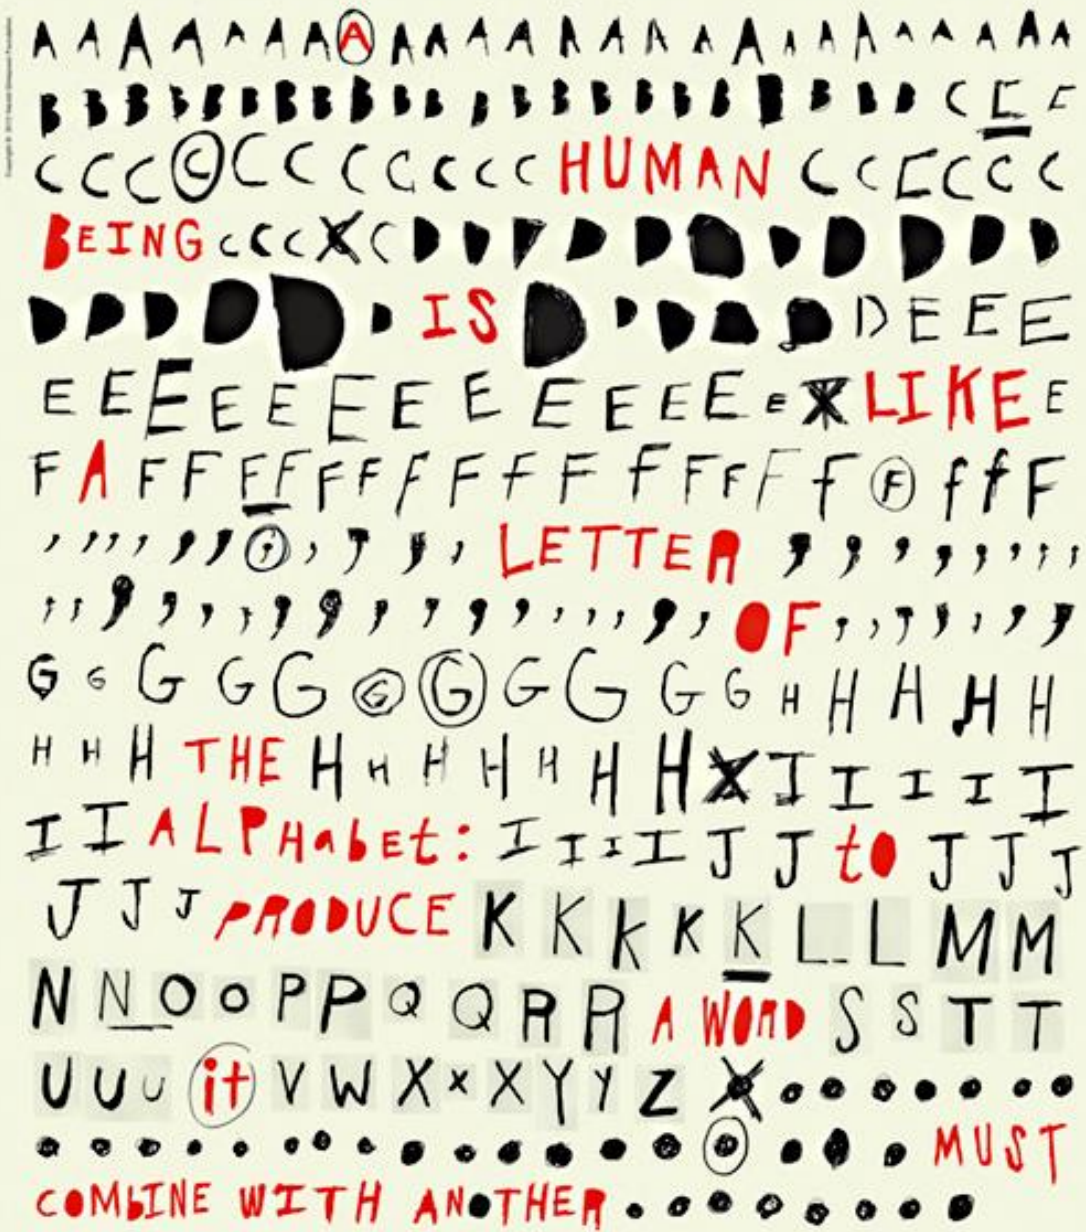 A A A A A A A A A A A A A A A A A A A A A A A A A A A
B B B B B B B B B B B B B B B B B B B B B C C C
C C C C C C C C C C C HUMAN C C C C C C
BEING C C C X C D D D D D D D D D D D
D D D D D D IS D D D D D D E E E
E E E E E E E E E E E E E E X LIKE E
F A F F F F F F F F F F F F F F F F f f F
, , , , , , , , , , , LETTER , , , , , , , , ,
, , , , , , , , , , , , , , , , , OF , , , , , , ,
G G G G G G G G G G G H H H H H
H H H THE H H H H H H H X I I I I I
I I ALPHabet: I I I I J J to J J J
J J J PRODUCE K K K K K L L M M
N N O O P P Q Q R R A WORD S S T T
U U U it V W X X X Y Y Z X . . . . . . .
. . . . . . . . . . . . . . . . . . MUST
COMbINE WITH ANOTHER . . . . . . . .